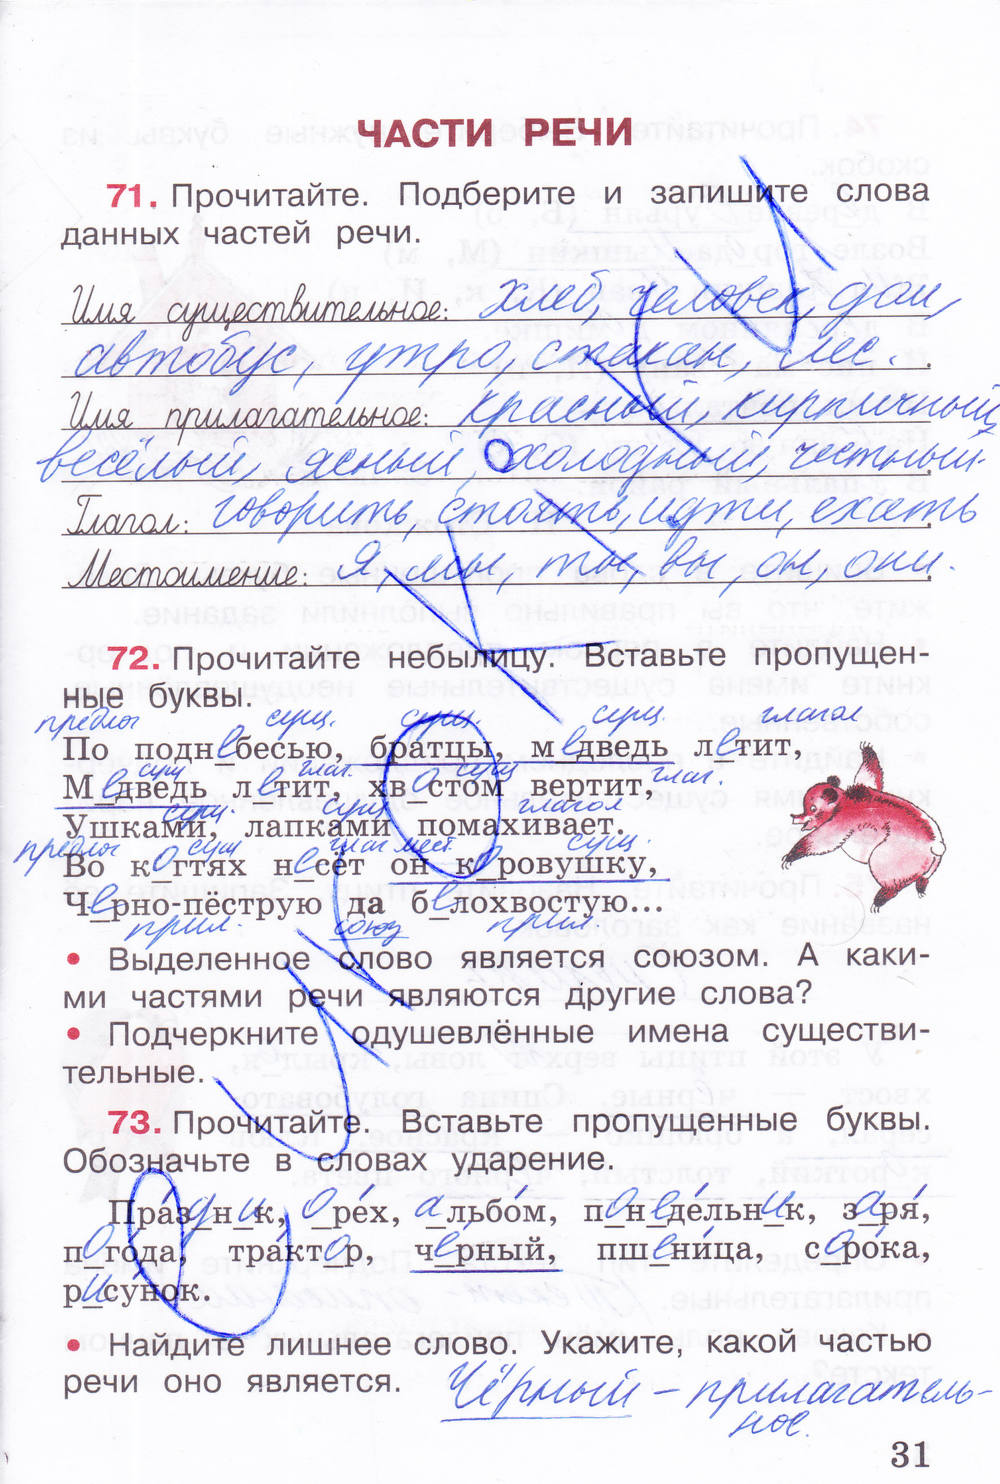 ЧАСТИ РЕЧИ
71. Прочитайте. Подберите и запишите слова
данных частей речи.
Имя существительное: хлеб, человек, дом,
автобус, утро, стакан, лес.
Имя прилагательное: красный, кирпичный,
весёлый, ясный, холодный, честный.
Глагол: говорить, стоять, идти, ехать
Местоимение: Я, мы, ты, вы, он, они.
72. Прочитайте небылицу. Вставьте пропущен-
ные буквы.
предлог сущ. сущ. сущ. глагол
По поднебесью, братцы, медведь летит,
сущ глаг. сущ глаг.
Медведь летит, хвостом вертит,
сущ. сущ глагол
Ушками, лапками помахивает.
предлог сущ глаг мест. сущ.
Во когтях несёт он коровушку,
Черно-пёструю да белохвостую.
прил. союз прил.
• Выделенное слово является союзом. А каки-
ми частями речи являются другие слова?
• Подчеркните одушевлённые имена существи-
тельные.
73. Прочитайте. Вставьте пропущенные буквы.
Обозначьте в словах ударение.
Пра́здник, оре́х, альбо́м, понеде́льник, заря́,
пого́да, тра́ктор, чёрный, пшени́ца, соро́ка,
рису́нок.
• Найдите лишнее слово. Укажите, какой частью
речи оно является. Чёрный – прилагатель-
ное.
31